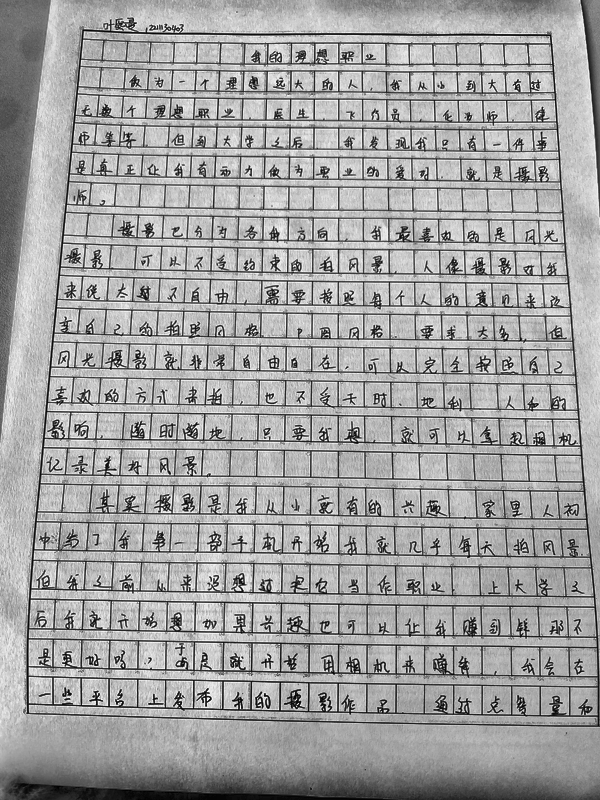 221130403
我的理想职业
做为一个理想远大的人，我从小到大有过
无数个理想职业，医生，飞行员，化妆师，律
师等等。但到大学之后 我发现我只有一件事
是真正让我有动力做为职业的爱好，就是摄影
师。
摄影也分为各种方向，我最喜欢的是风光
摄影 可以不受约束的拍风景，人像摄影对我
来说太过不自由，需要按照每个人的意见来改
变自己的拍照风格 P图风格 要求太多，但
风光摄影就非常自由自在，可以完全按照自己
喜欢的方式来拍，也不受天时、地利 人和的
影响，随时随地，只要我想，就可以拿起相机
记录美好风景。
其实摄影是我从小就有的兴趣 家里人初
中给了我第一部手机开始我就几乎每天拍风景
但我之前从来没想过把它当作职业，上大学之
后我就开始想如果兴趣也可以让我赚到钱那不
是更好吗？于是就开始用相机来赚钱，我会在
一些平台上发布我的摄影作品 通过点赞量和